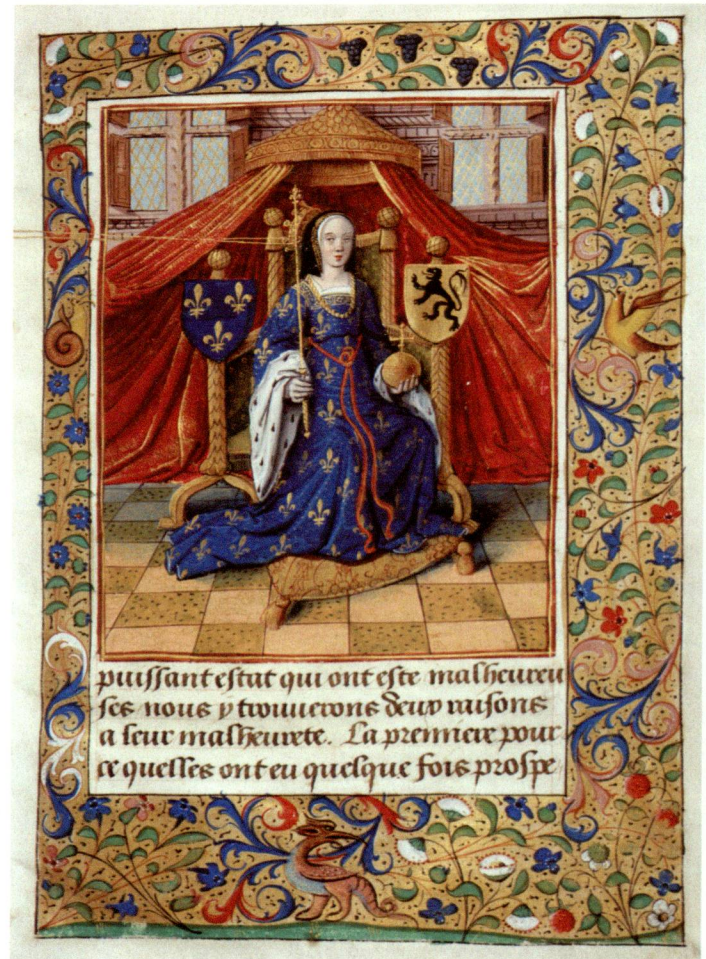 puissant estat qui ont este malheureu
ses nous y trouuerons deux raisons
a leur malheurete. La premiere pour
ce quelles ont eu quelque fois prospe